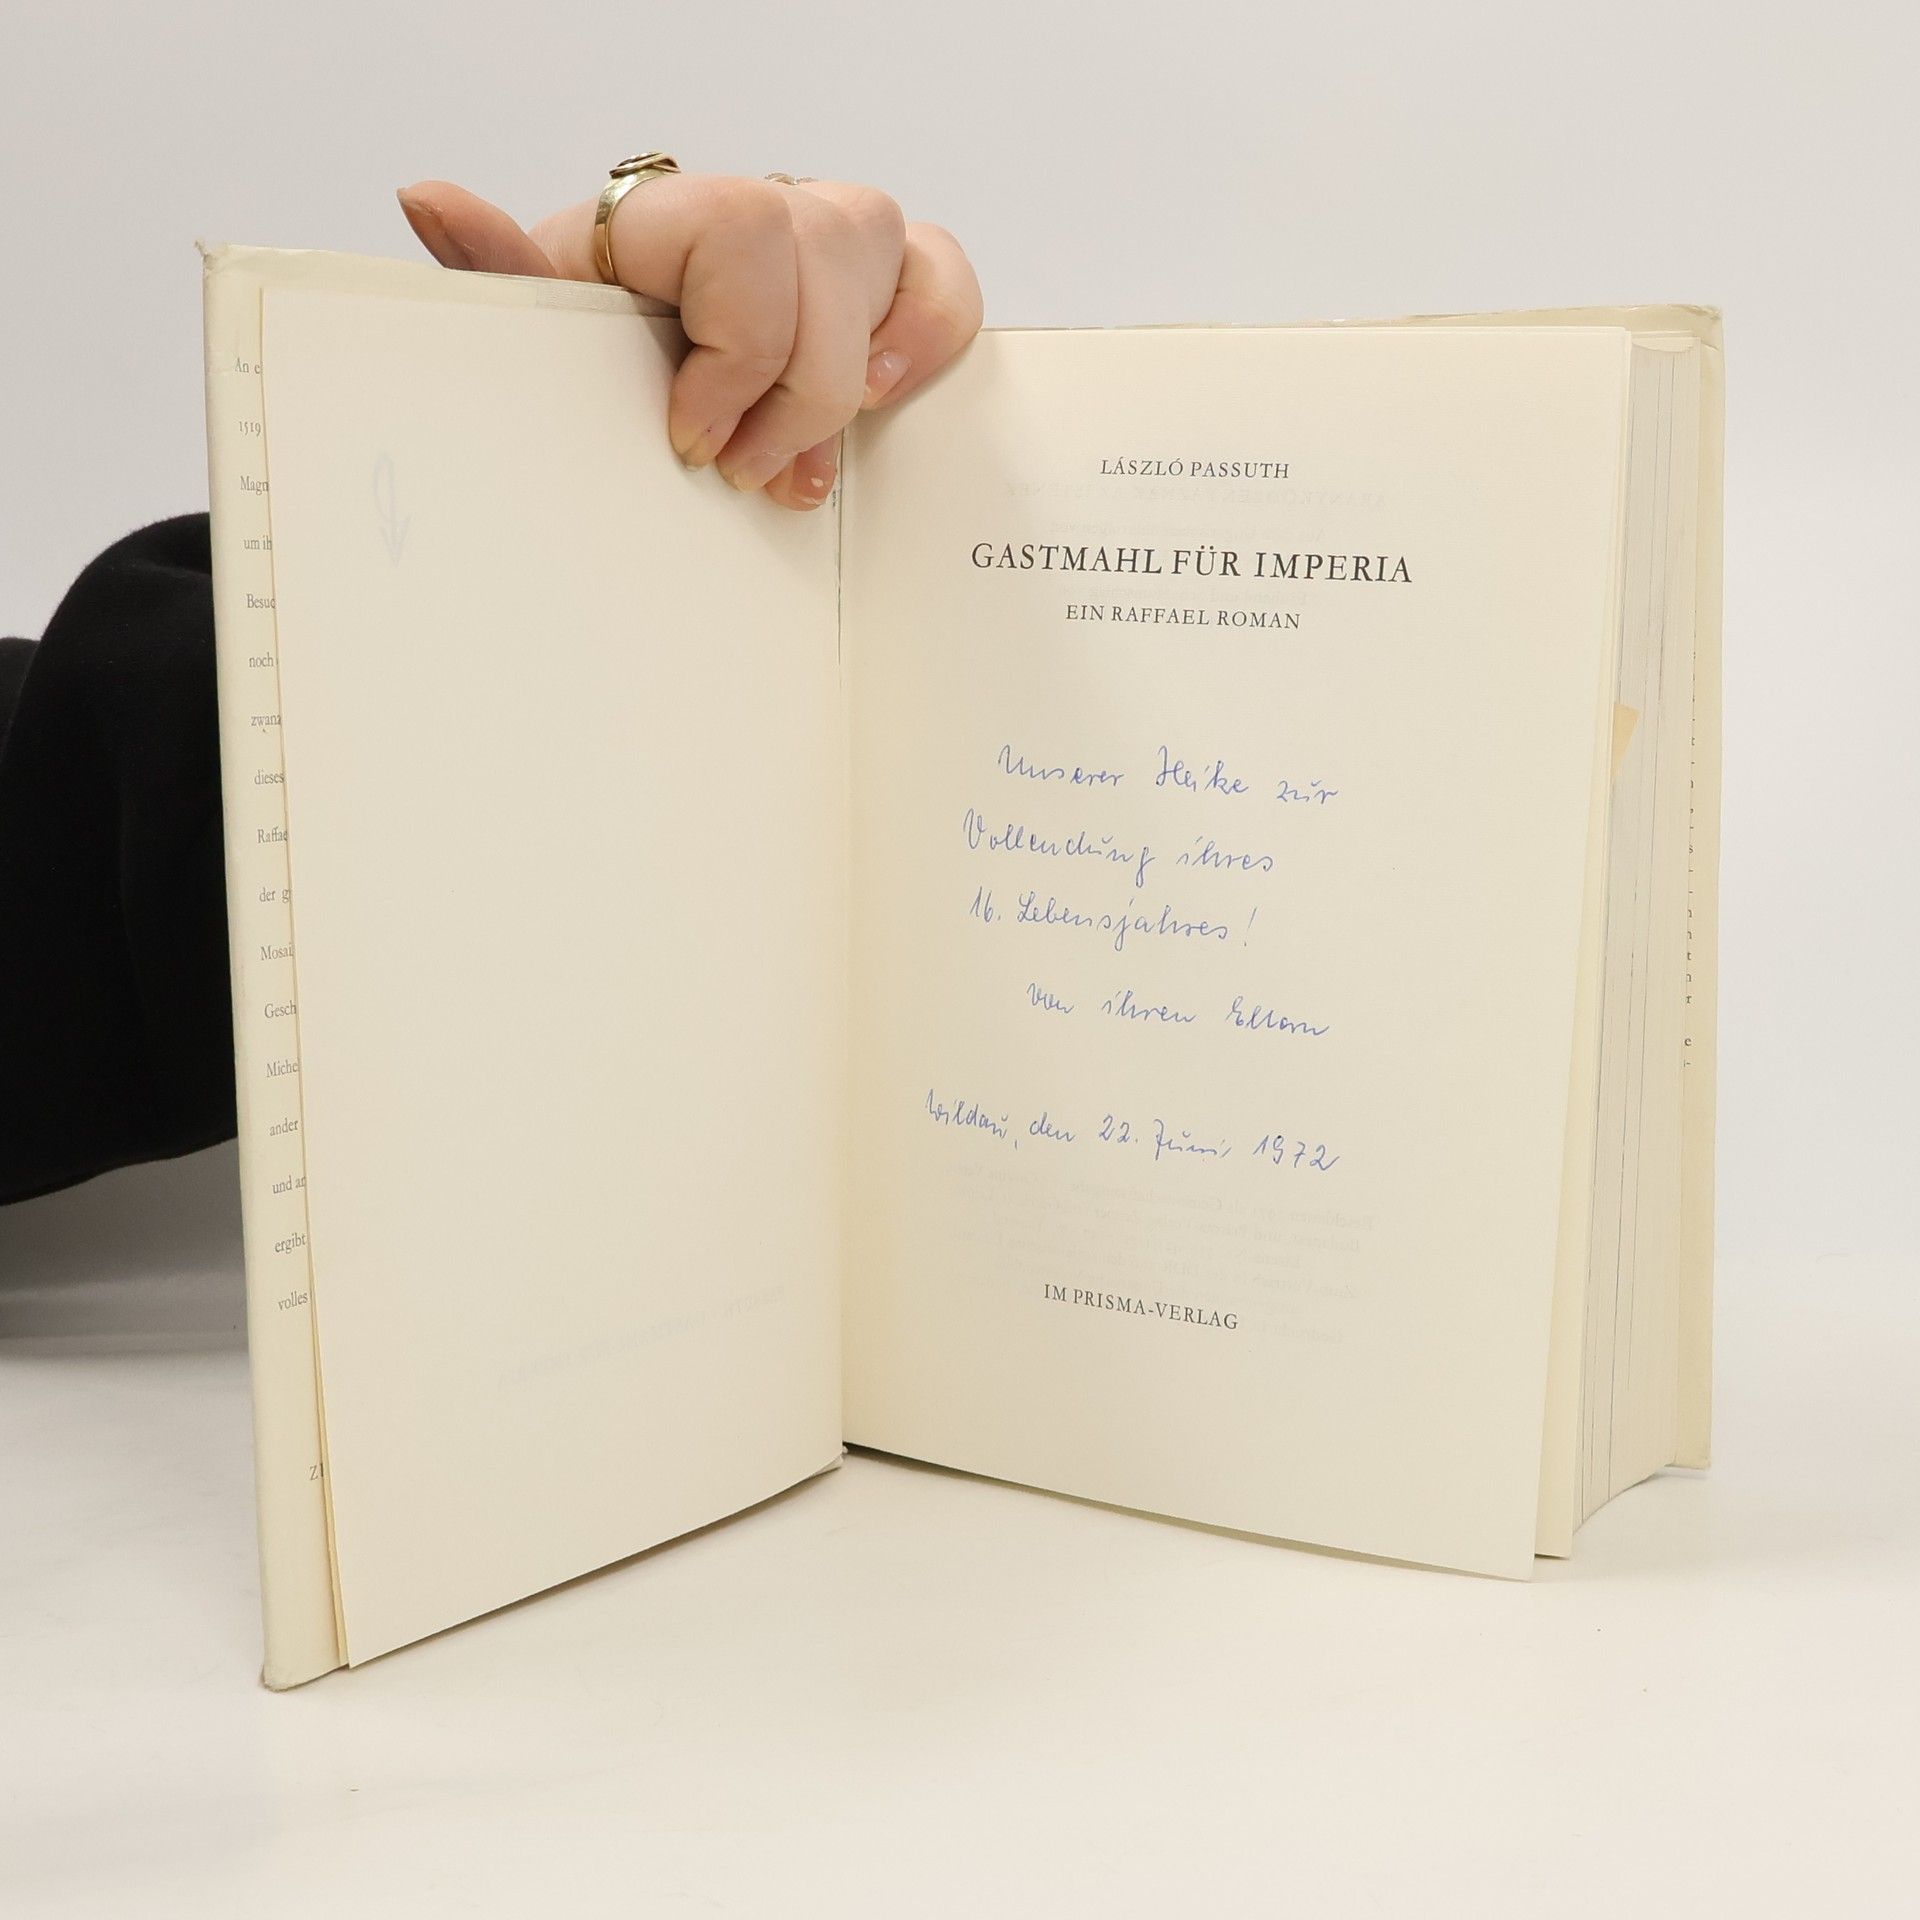 An e
1519
Magn
um ih
Besuc
noch
zwanz
dieses
Raffae
der g
Mosai
Gesch
Miche
ander
und an
ergibt
volles
LÁSZLÓ PASSUTH
GASTMAHL FÜR IMPERIA
EIN RAFFAEL ROMAN
Unserer Heike zur
Vollendung ihres
16. Lebensjahres!
von ihren Eltern
Wildau, den 22. Juni 1972
IM PRISMA-VERLAG